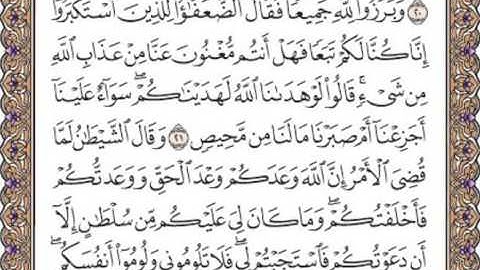 ٢٠ وَبَرَزُوا۟ لِلَّهِ جَمِيعًا فَقَالَ ٱلضُّعَفَٰٓؤُا۟ لِلَّذِينَ ٱسْتَكْبَرُوٓا۟
إِنَّا كُنَّا لَكُمْ تَبَعًا فَهَلْ أَنتُم مُّغْنُونَ عَنَّا مِنْ عَذَابِ ٱللَّهِ
مِن شَىْءٍ ۚ قَالُوا۟ لَوْ هَدَىٰنَا ٱللَّهُ لَهَدَيْنَٰكُمْ ۖ سَوَآءٌ عَلَيْنَآ
أَجَزِعْنَآ أَمْ صَبَرْنَا مَا لَنَا مِن مَّحِيصٍ ٢١ وَقَالَ ٱلشَّيْطَٰنُ لَمَّا
قُضِىَ ٱلْأَمْرُ إِنَّ ٱللَّهَ وَعَدَكُمْ وَعْدَ ٱلْحَقِّ وَوَعَدتُّكُمْ
فَأَخْلَفْتُكُمْ ۖ وَمَا كَانَ لِىَ عَلَيْكُم مِّن سُلْطَٰنٍ إِلَّآ
أَن دَعَوْتُكُمْ فَٱسْتَجَبْتُمْ لِى ۖ فَلَا تَلُومُونِى وَلُومُوٓا۟ أَنفُسَكُم ۖ